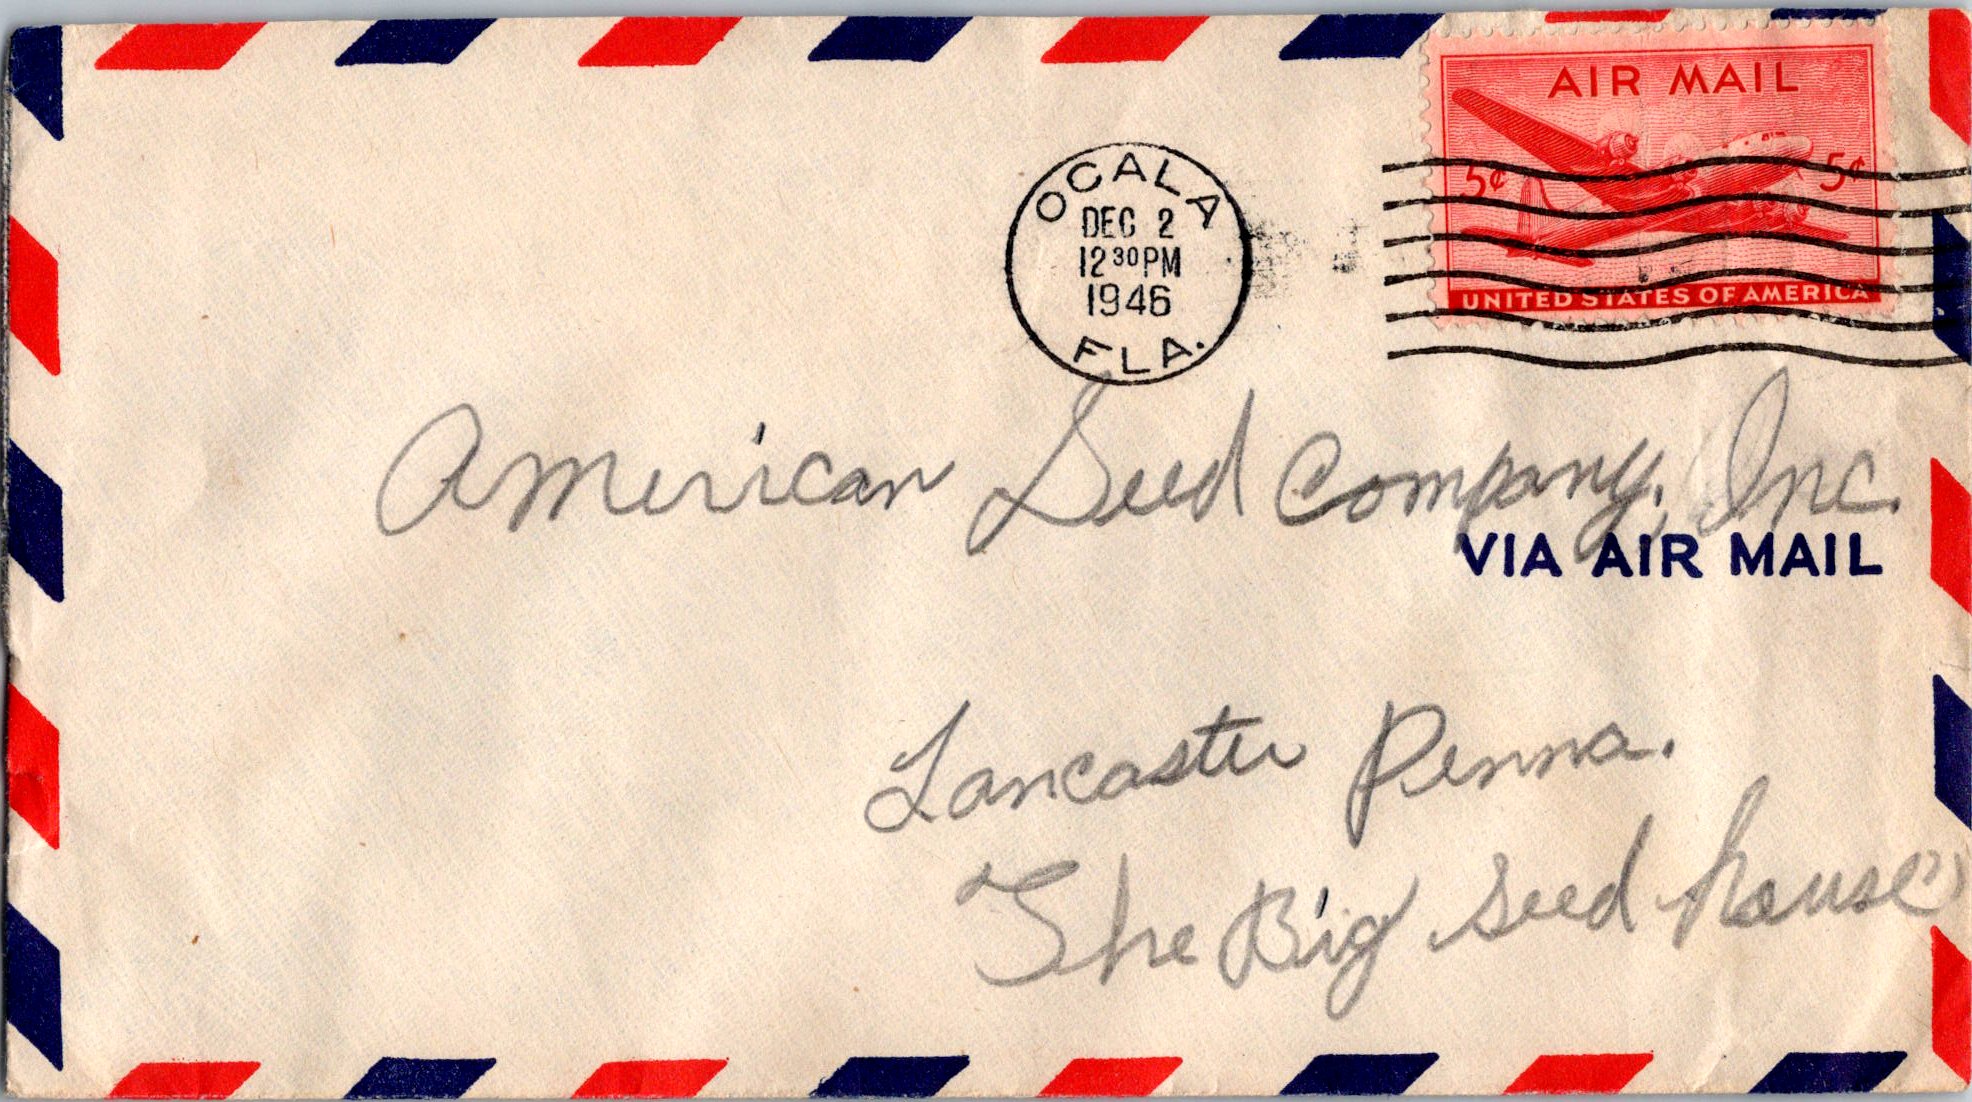 AIR MAIL
5¢ 5¢
UNITED STATES OF AMERICA
OCALA
DEC 2
12 30 PM
1946
FLA.
American Seed Company, Inc.
VIA AIR MAIL
Lancaster Penna.
The Big Seed house